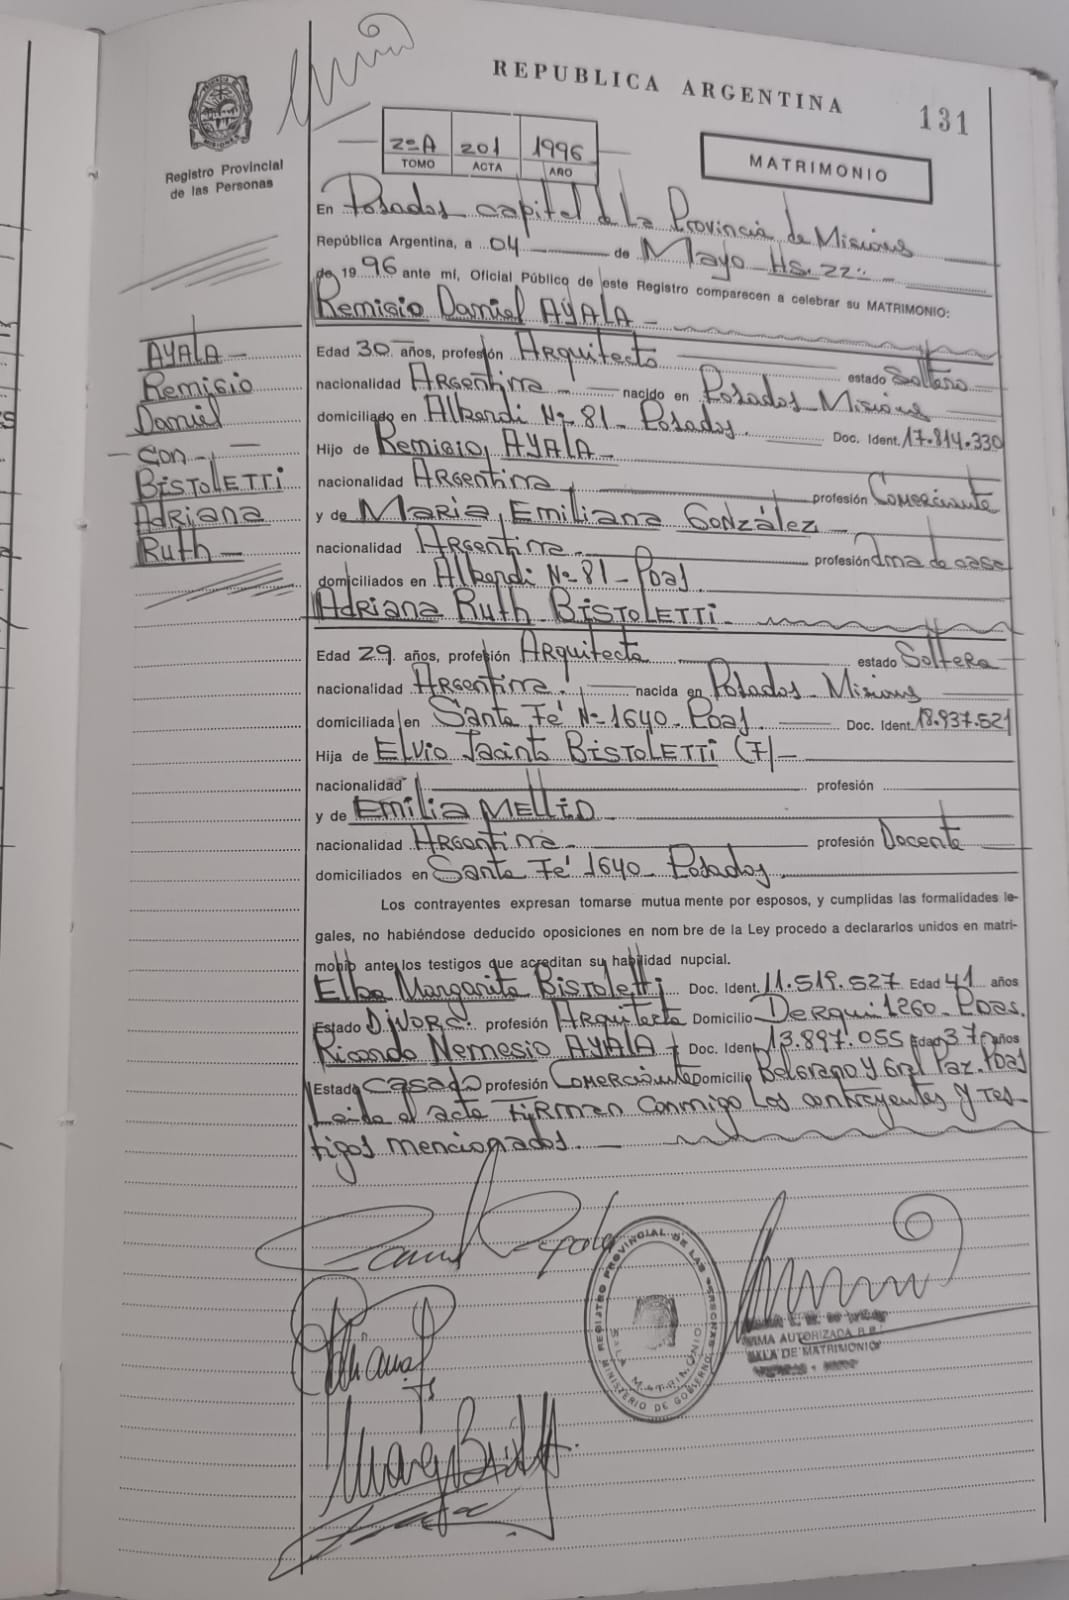 REPUBLICA ARGENTINA
131
Registro Provincial
de las Personas
2º A 201 1996
TOMO ACTA AÑO
MATRIMONIO
En Posadas capital de la Provincia de Misiones
República Argentina, a 04 de Mayo Hs. 22
de 1996 ante mí, Oficial Público de este Registro comparecen a celebrar su MATRIMONIO:
Remisio Daniel AYALA
AYALA
Remisio
Daniel
con
BISTOLETTI
Adriana
Ruth
Edad 30 años, profesión Arquitecto estado Soltero
nacionalidad Argentina nacido en Posadas Misiones
domiciliado en Alberdi Nº 81 - Posadas. Doc. Ident. 17.814.330
Hijo de Remisio AYALA
nacionalidad Argentina profesión Comerciante
y de María Emiliana González
nacionalidad Argentina profesión ama de casa
domiciliados en Alberdi Nº 81 - Pdas.
Adriana Ruth BISTOLETTI
Edad 29 años, profesión Arquitecta estado Soltera
nacionalidad Argentina nacida en Posadas - Misiones
domiciliada en Santa Fé Nº 1640 - Pdas. Doc. Ident. 18.937.521
Hija de Elvio Jacinto BISTOLETTI (F)
nacionalidad profesión
y de Emilia MELLID
nacionalidad Argentina profesión Docente
domiciliados en Santa Fé 1640 - Posadas
Los contrayentes expresan tomarse mutua mente por esposos, y cumplidas las formalidades le-
gales, no habiéndose deducido oposiciones en nom bre de la Ley procedo a declararlos unidos en matri-
monio ante los testigos que acreditan su habilidad nupcial.
Elba Margarita Bistoletti Doc. Ident. 11.519.527 Edad 41 años
Estado Divorc. profesión Arquitecta Domicilio Derqui 1260 - Pdas.
Ricardo Nemesio AYALA Doc. Ident. 13.897.055 Edad 37 años
Estado casado profesión Comerciante Domicilio Belgrano y Gral Paz. Pdas
Leida el acta firman conmigo los contrayentes y tes-
tigos mencionados.
REGISTRO PROVINCIAL DE LAS PERSONAS
SALA MATRIMONIO
MINISTERIO DE GOBIERNO
FIRMA AUTORIZADA R.P.
SALA DE MATRIMONIO